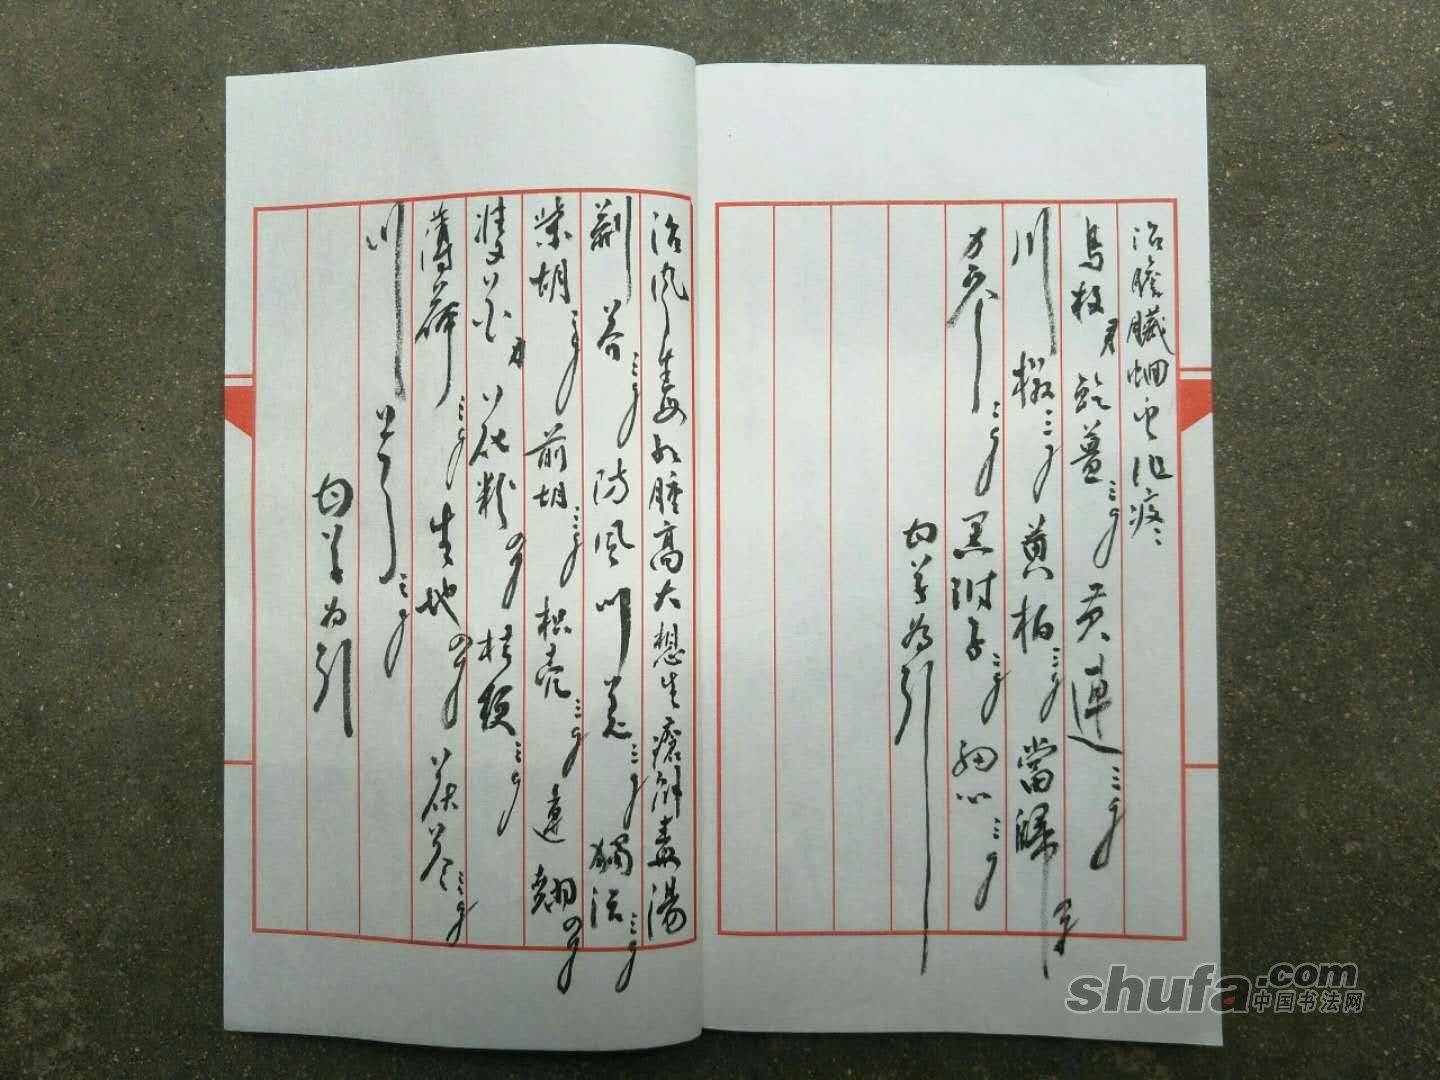 治膽臟蛔虫作疼
烏枚 乾薑三钱 黄連三钱
川椒三钱 黄柏三钱 當歸
三钱 黑附子三钱 細心三钱
为引
治风毒 腫高大想生瘡解毒湯
荆芥三钱 防風 川 三钱 獨活三钱
柴胡三钱 前胡三钱 枳壳三钱 連翘四钱
花粉四钱 桔梗三钱
薄荷三钱 生地四钱 茯苓三钱
川芎三钱
甘草为引
shufa.com
中国书法网